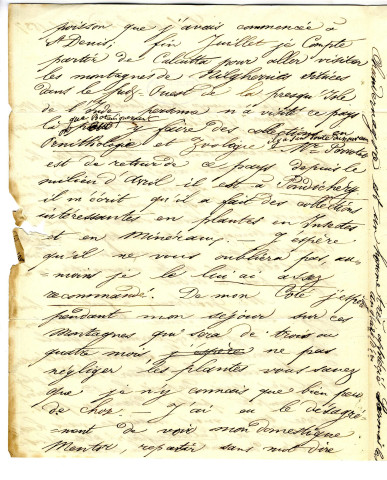 poisson que j'avais commencée à
St Denis, fin Juillet je Compte
partir de Calcutta pour aller visiter
les montagnes de Nilgherries situées
dans le Sud-Ouest de la presqu'Isle
de l'Inde personne n'a visité ce pays
là que Botaniquement
pour y faire des collections en
Ornithologie et Zoologie Mr Perrotet
est de retour de ce pays depuis le
milieu d'avril il est à Pondichery
il m'écrit qu'il a fait des collections
interessantes en plantes en Insectes
et en Mineraux. — J'espère
qu'il ne vous oubliera pas, au-
-moins je le lui ai assez
recommandé. De mon Coté j'espère
pendant mon sejour sur ces
Montagnes qui sera de trois ou
quatre mois, j'espère ne pas
négliger les plantes vous savez
que je n'y connais que bien peu
de chose. — J'ai eu le desagré-
-ment de voir mon domestique
Mentor, repartir sans mot dire